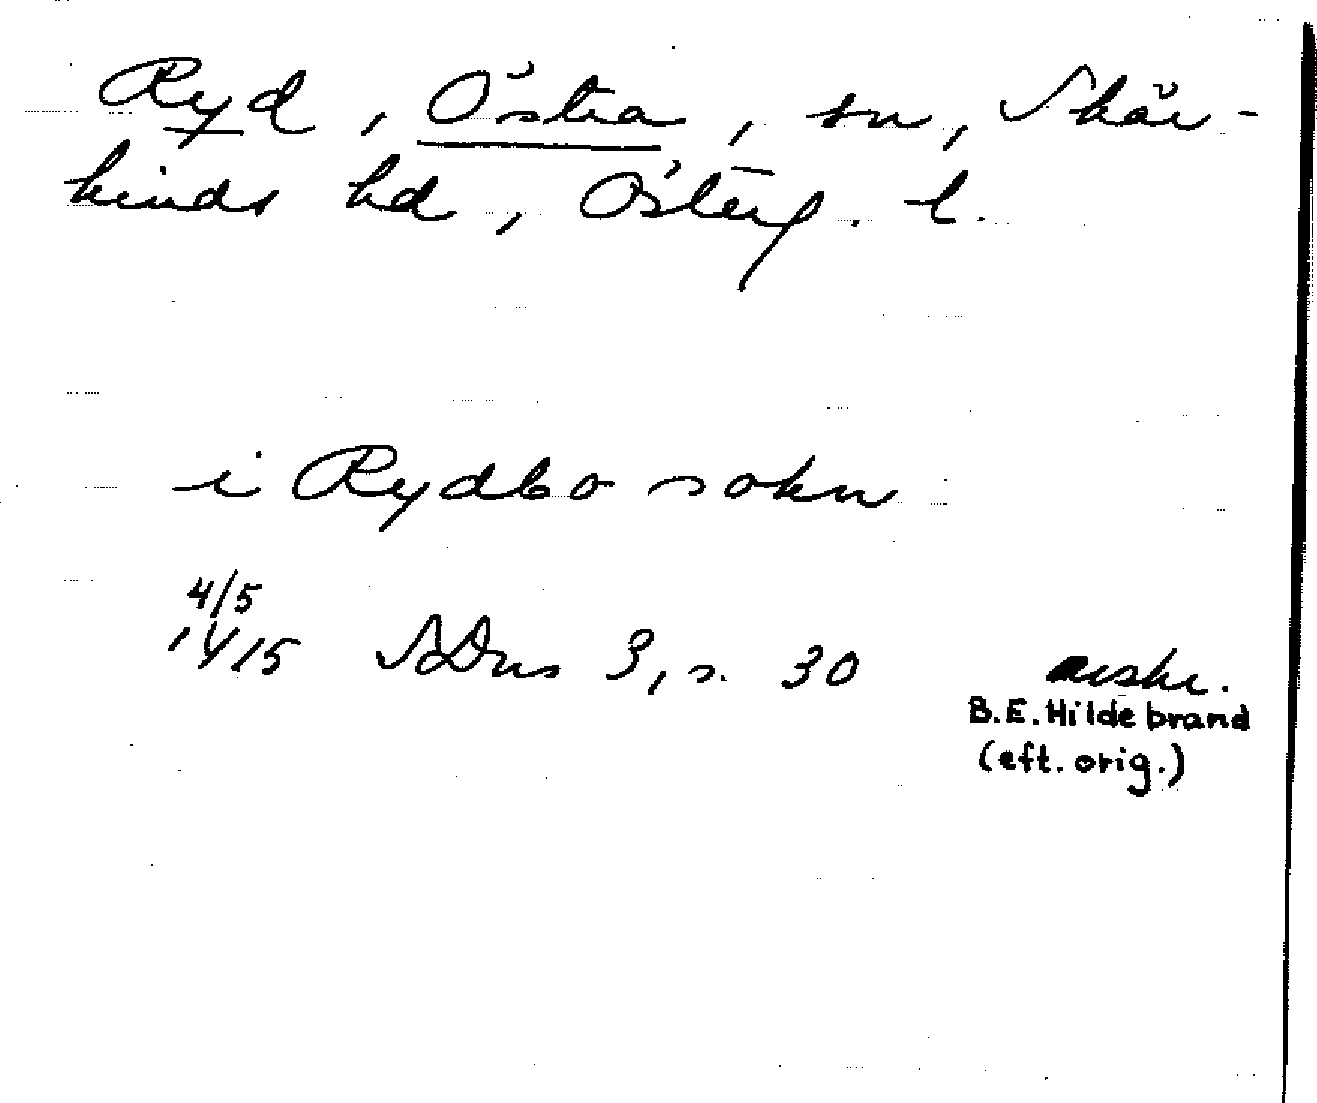 Ryd, Östra, sn, Skär-
kinds hd, Österg. l.
i Rydbo sokn
4/5
1415 SDns 3, s. 30 avskr.
B.E. Hildebrand
(eft. orig.)